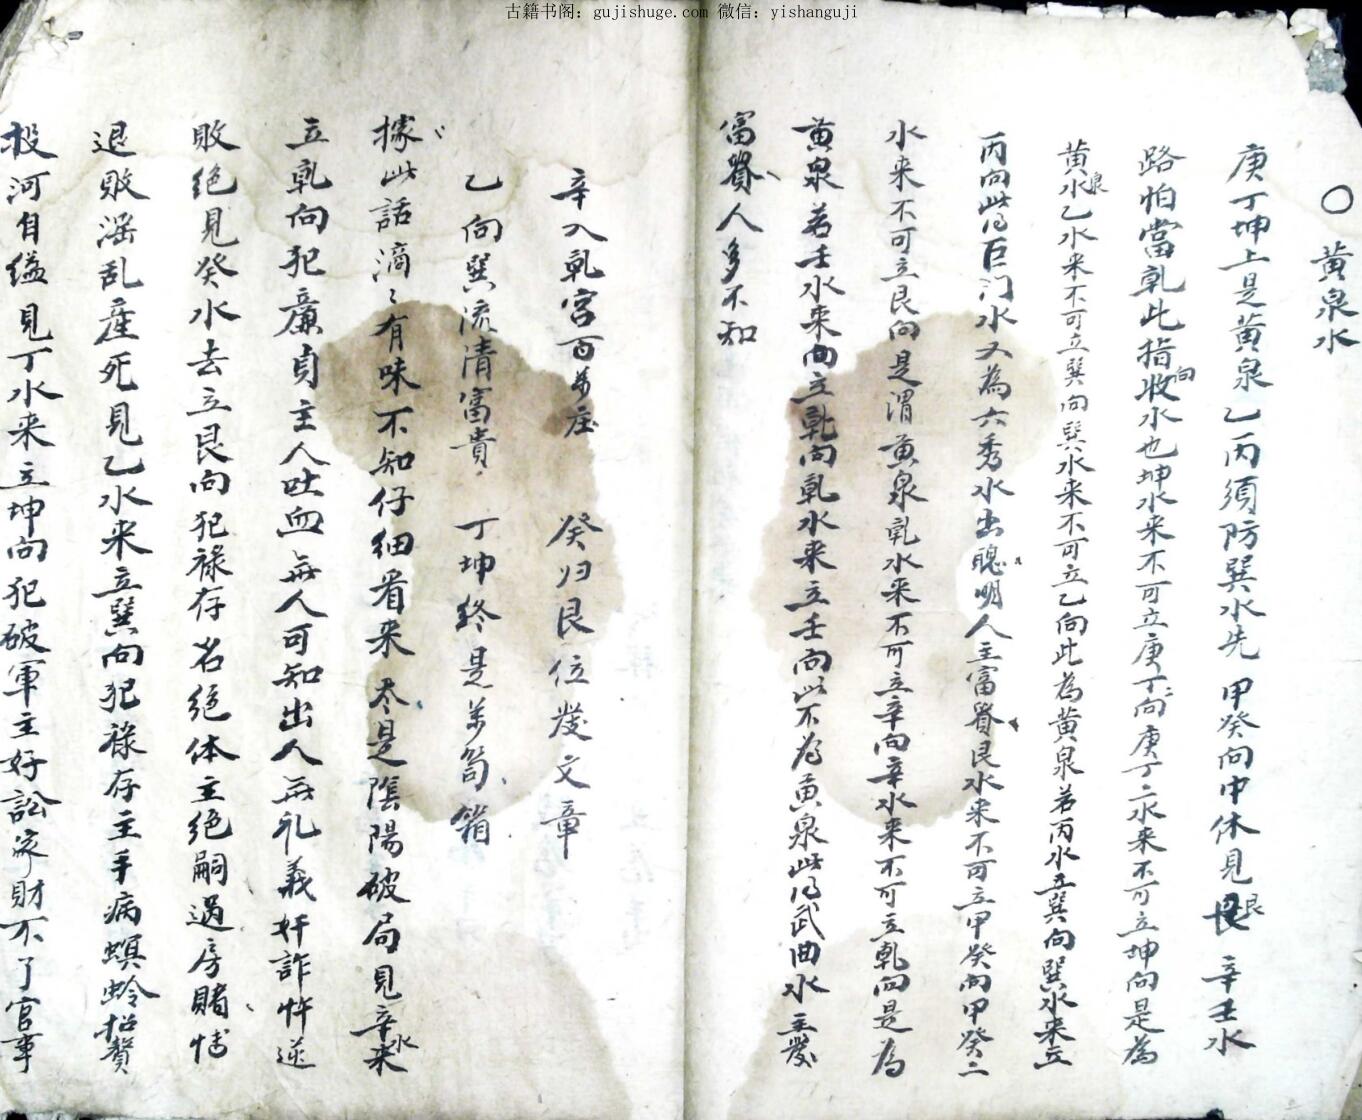 古籍书阁：gujishuge.com 微信：yishanguji
○黄泉水
庚丁坤上是黄泉乙丙須防巽水先 甲癸向中休見艮 辛壬水
路怕當乾此指收向水也坤水来不可立庚丁向庚丁二水来不可立坤向是為
黄泉水乙水来不可立巽向巽水来不可立乙向此為黄泉若丙水立巽向巽水来立
丙向此为巨门水又為六秀水出聰明人主富貴艮水来不可立甲癸向甲癸二
水来不可立艮向是谓黄泉乾水来不可立辛向辛水来不可立乾向是為
黄泉若壬水来向立乾向乾水来立壬向此不為黄泉此为武曲水主發
富貴人多不知
辛入乾宫百萬庄 癸归艮位發文章
乙向巽流清富貴 丁坤終是萬笥箱
據此話滴〻有味不知仔细看来尽是陰陽破局見辛水来
立乾向犯廉貞主人吐血無人可知出人無礼義奸詐忤逆
敗绝見癸水去立艮向犯禄存名绝体主绝嗣過房賭博
退敗滛乱産死見乙水来立巽向犯禄存主手病螟蛉招贅
投河自缢見丁水来立坤向犯破軍主好訟家財不了官事